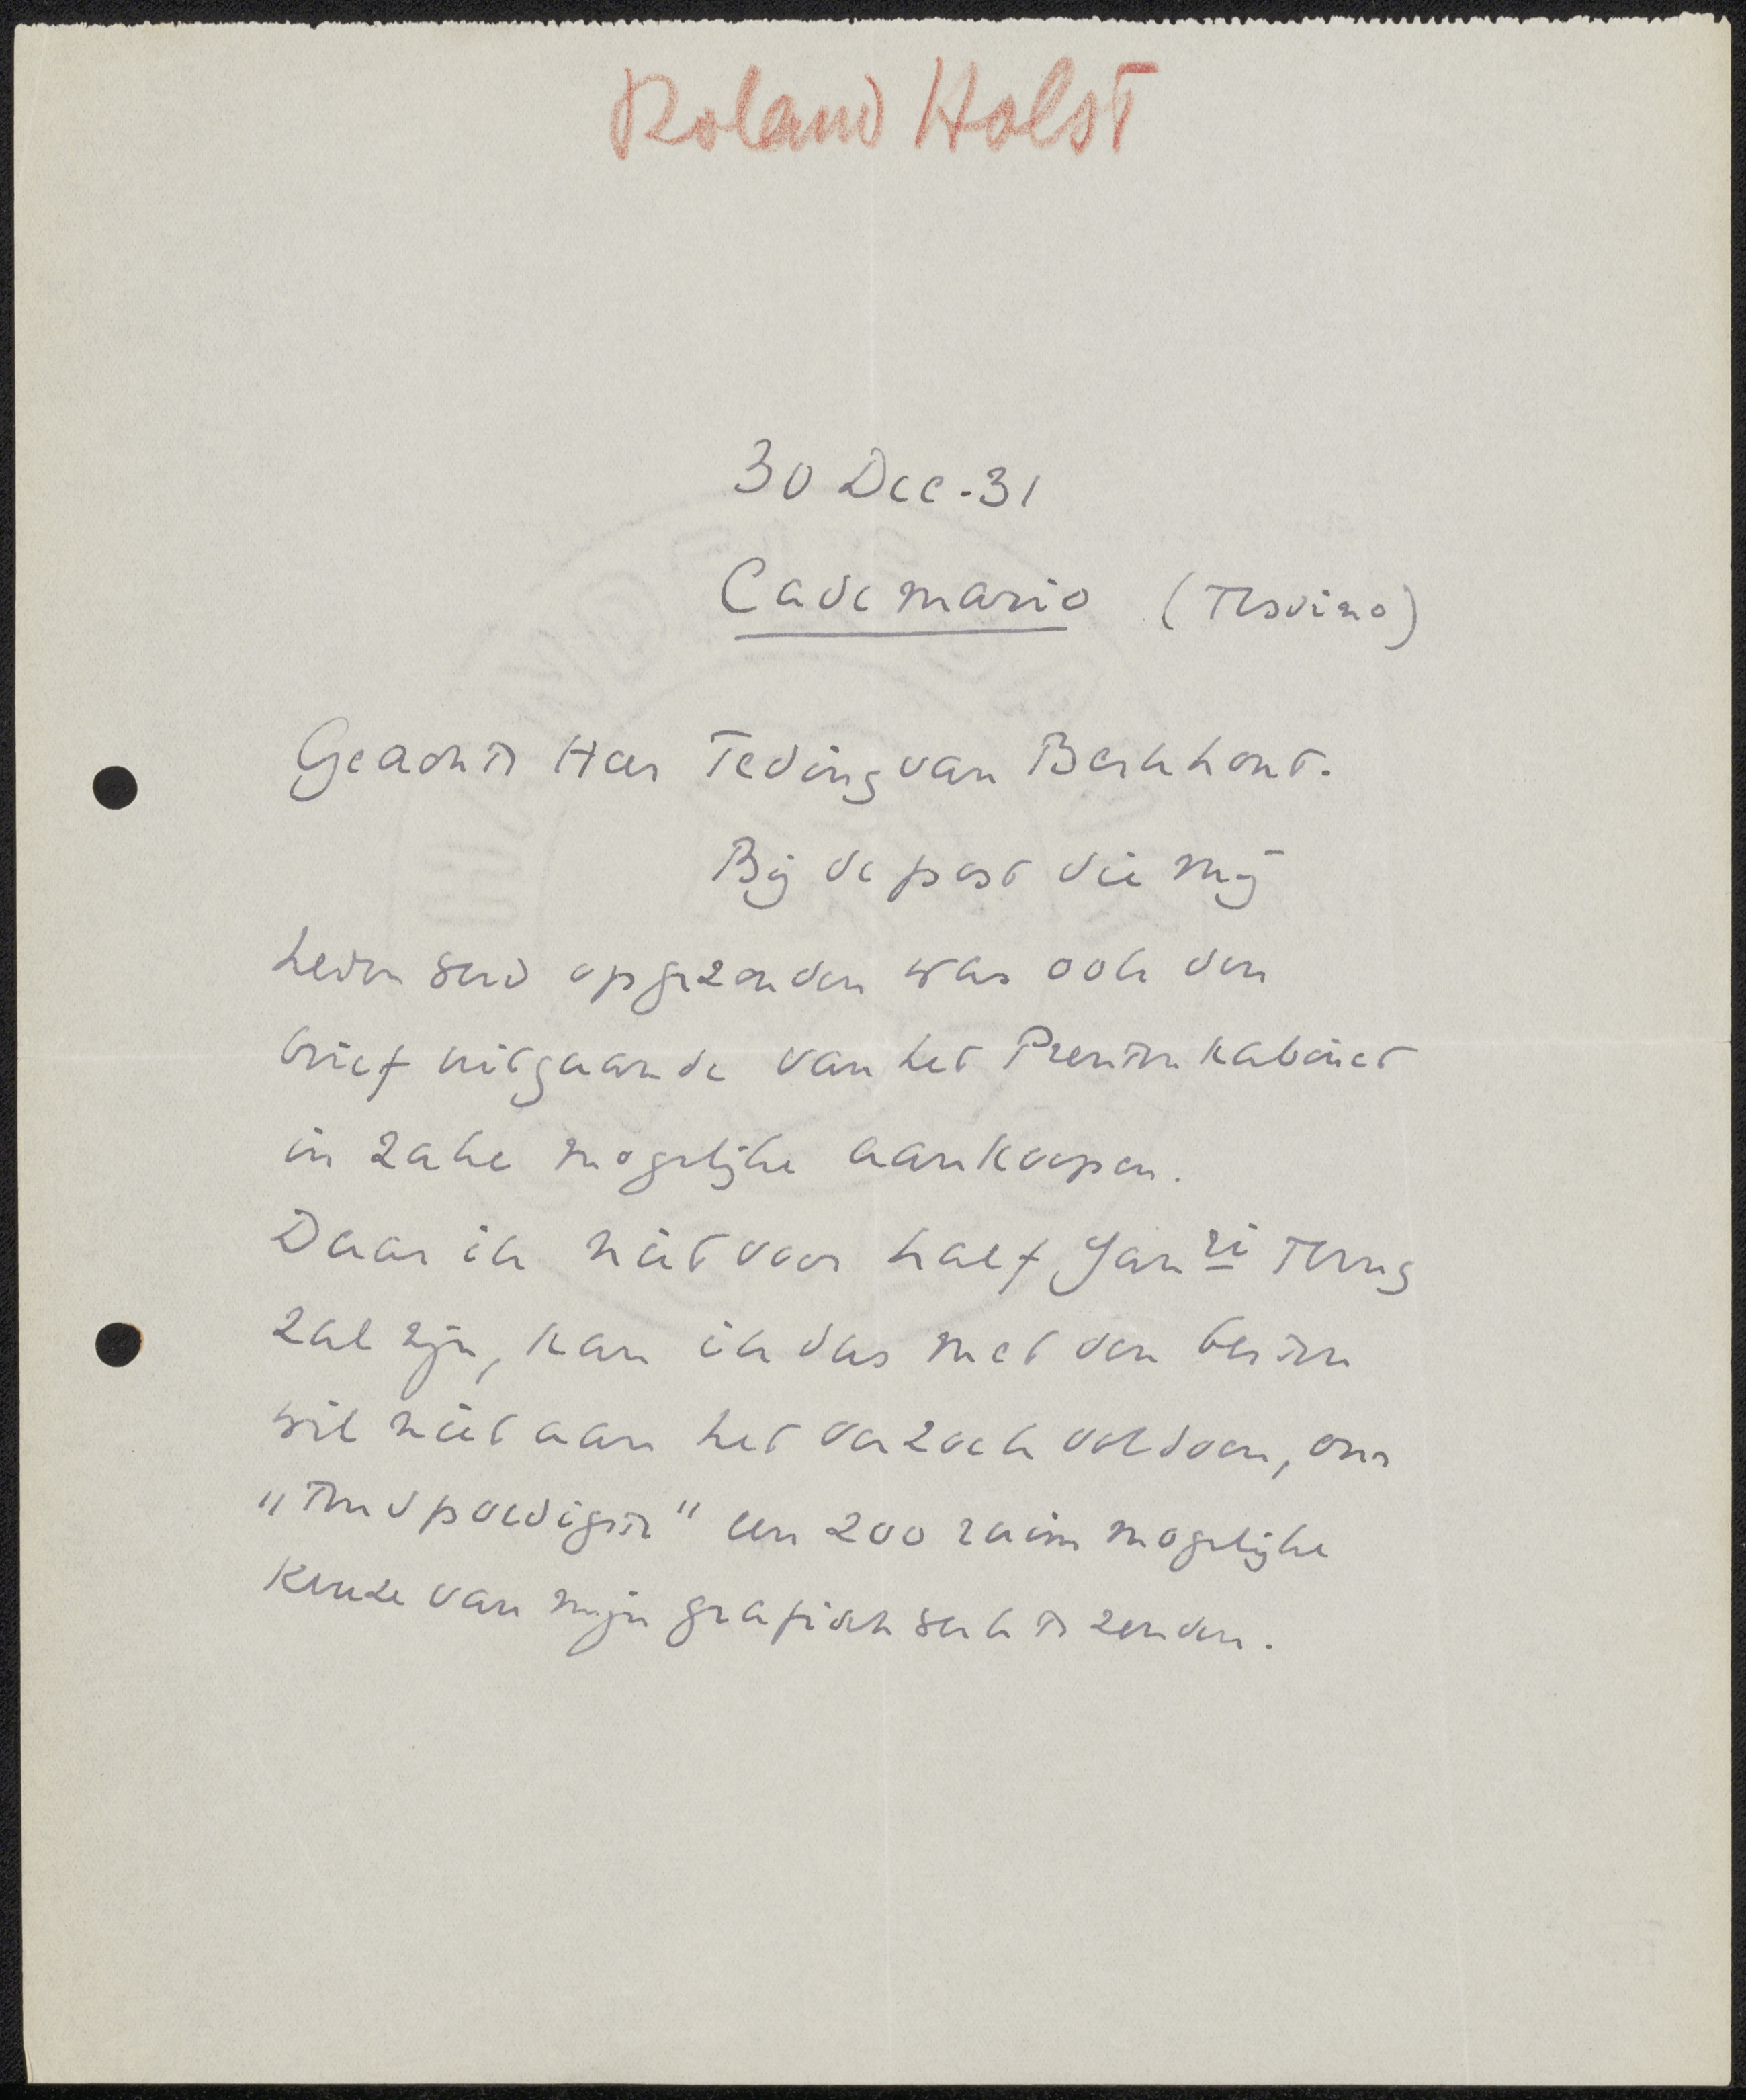 Roland Holst
30 Dec. 31
Cademario (Tessino)
Geachte Heer Teding van Berkhout.
Bij de post die mij
heden werd opgezonden was ook den
brief uitgaande van het Prentenkabinet
in zake mogelijke aankoopen.
Daar ik niet voor half Janri terug
zal zijn, kan ik dus met den besten
wil niet aan het verzoek voldoen, om
„ten spoedigste" een zoo ruim mogelijke
keuze van mijn grafisch werk te zenden.